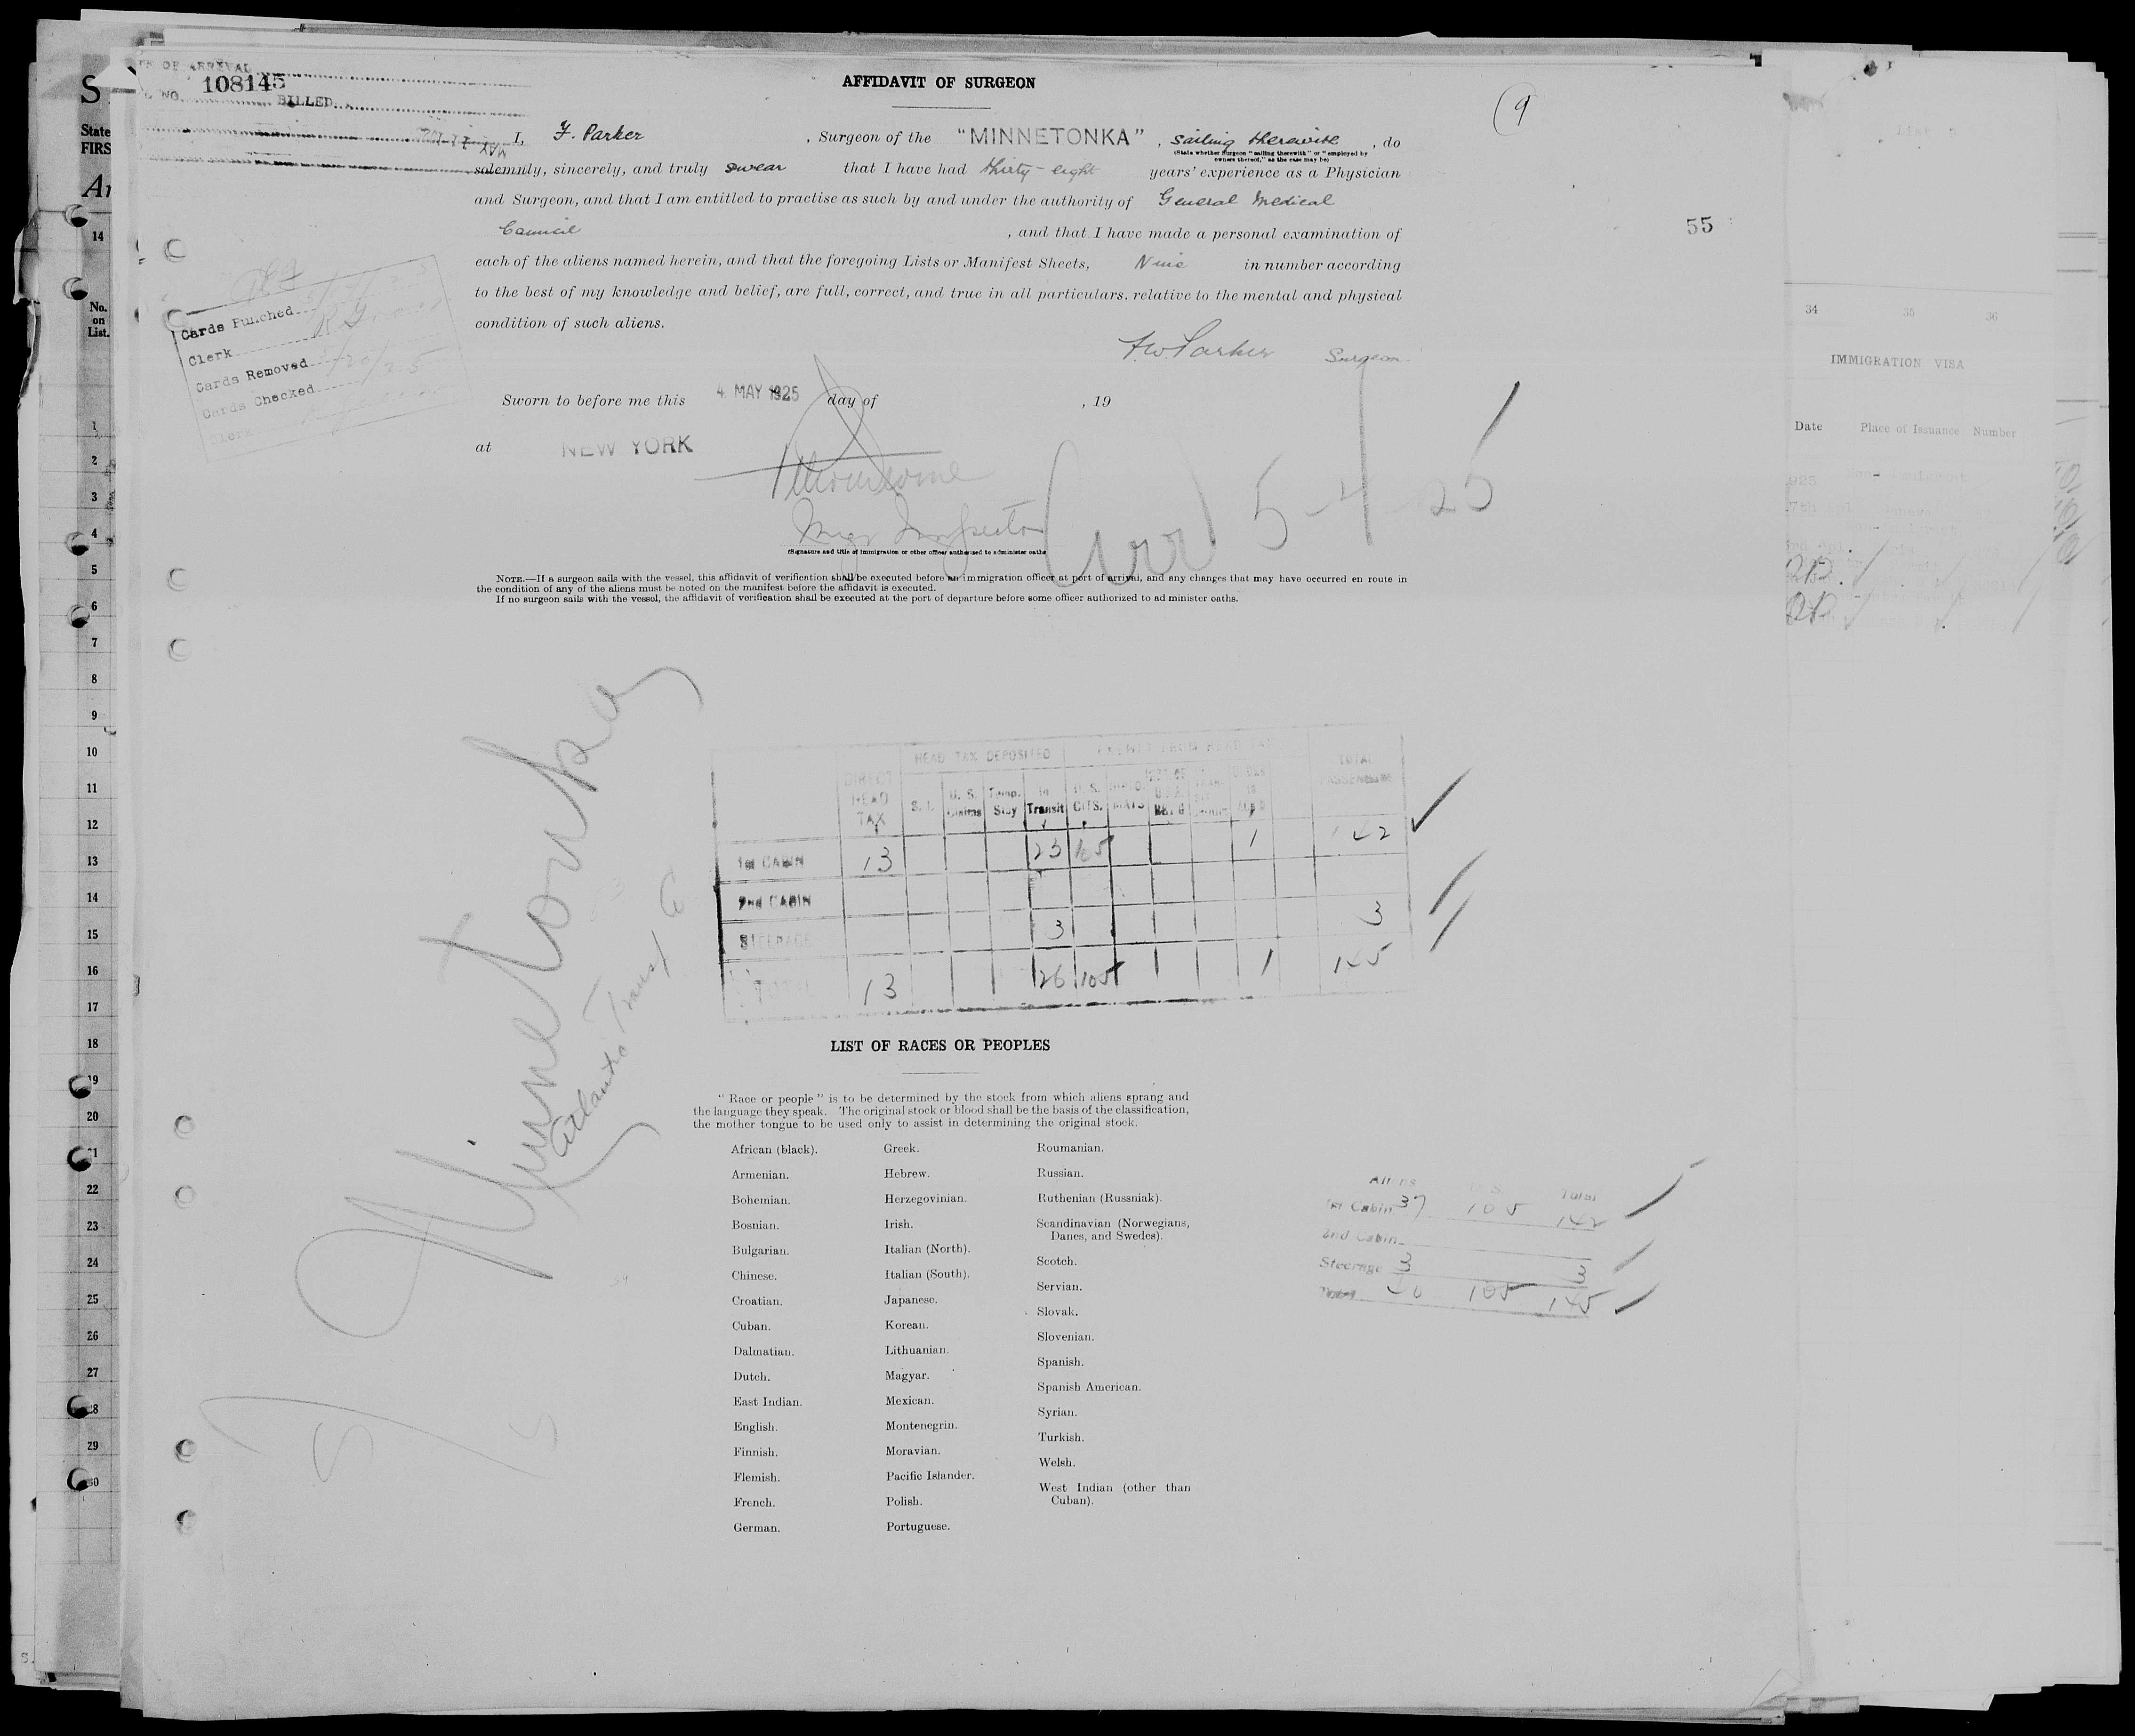 108145
BILLED
AFFIDAVIT OF SURGEON
9
I, F. Parker, Surgeon of the "MINNETONKA", sailing therewith, do
(State whether Surgeon "sailing therewith" or "employed by
owners thereof," as the case may be)
solemnly, sincerely, and truly swear that I have had thirty-eight years' experience as a Physician
and Surgeon, and that I am entitled to practise as such by and under the authority of General Medical
Council, and that I have made a personal examination of
each of the aliens named herein, and that the foregoing Lists or Manifest Sheets, Nine in number according
to the best of my knowledge and belief, are full, correct, and true in all particulars. relative to the mental and physical
condition of such aliens.
F.W. Parker Surgeon.
55
Cards Punched
Clerk
Cards Removed
Cards Checked
Clerk
Sworn to before me this 4 MAY 1925 day of , 19
at NEW YORK
Inspector
5-4-25
(Signature and title of immigration or other officer authorized to administer oaths
NOTE.—If a surgeon sails with the vessel, this affidavit of verification shall be executed before an immigration officer at port of arrival, and any changes that may have occurred en route in
the condition of any of the aliens must be noted on the manifest before the affidavit is executed.
If no surgeon sails with the vessel, the affidavit of verification shall be executed at the port of departure before some officer authorized to ad minister oaths.
Minnetonka
Atlantic Transpt Co
HEAD TAX DEPOSITED EXEMPT FROM HEAD TAX
DIRECT HEAD TAX
U. S. Claims
Temp. Stay
In Transit
U. S. CITS.
TOTAL PASSENGERS
1st CABIN 13 23 105 1 142
2nd CABIN
STEERAGE 3 3
TOTAL 13 26 105 1 145
LIST OF RACES OR PEOPLES
"Race or people" is to be determined by the stock from which aliens sprang and
the language they speak. The original stock or blood shall be the basis of the classification,
the mother tongue to be used only to assist in determining the original stock.
African (black).
Armenian.
Bohemian.
Bosnian.
Bulgarian.
Chinese.
Croatian.
Cuban.
Dalmatian.
Dutch.
East Indian.
English.
Finnish.
Flemish.
French.
German.
Greek.
Hebrew.
Herzegovinian.
Irish.
Italian (North).
Italian (South).
Japanese.
Korean.
Lithuanian.
Magyar.
Mexican.
Montenegrin.
Moravian.
Pacific Islander.
Polish.
Portuguese.
Roumanian.
Russian.
Ruthenian (Russniak).
Scandinavian (Norwegians,
Danes, and Swedes).
Scotch.
Servian.
Slovak.
Slovenian.
Spanish.
Spanish American.
Syrian.
Turkish.
Welsh.
West Indian (other than
Cuban).
Aliens U.S. Total
1st Cabin 37 105 142
2nd Cabin
Steerage 3 3
Total 40 105 145
34 35 36
IMMIGRATION VISA
Date Place of Issuance Number
State
FIRS
14
No.
on
List.
1
2
3
4
5
6
7
8
9
10
11
12
13
14
15
16
17
18
19
20
21
22
23
24
25
26
27
28
29
30